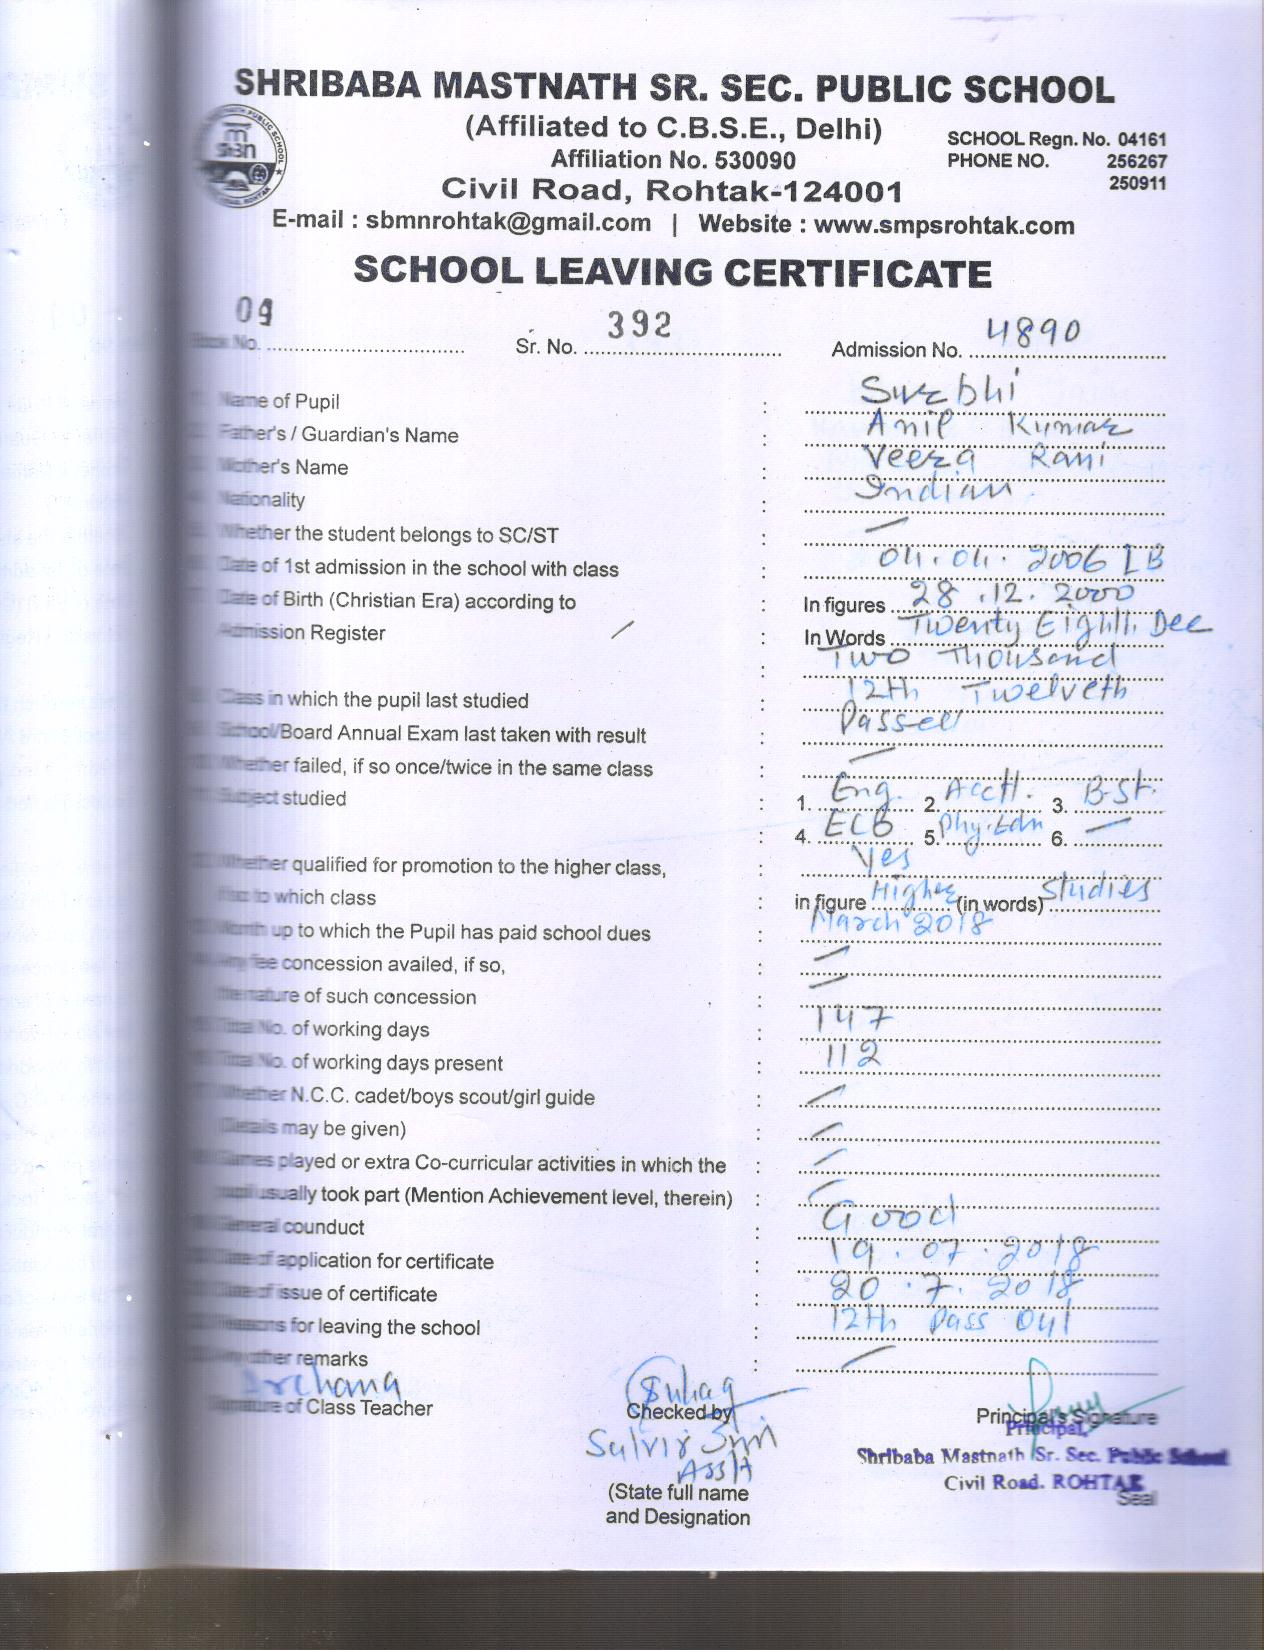 SHRIBABA MASTNATH SR. SEC. PUBLIC SCHOOL
(Affiliated to C.B.S.E., Delhi)
SCHOOL Regn. No. 04161
Affiliation No. 530090
PHONE NO. 256267
250911
Civil Road, Rohtak-124001
E-mail : sbmnrohtak@gmail.com | Website : www.smpsrohtak.com
SCHOOL LEAVING CERTIFICATE
Book No. 09 Sr. No. 392 Admission No. 4890
Name of Pupil : Surbhi
Father's / Guardian's Name : Anil Kumar
Mother's Name : Veera Rani
Nationality : Indian
Whether the student belongs to SC/ST : —
Date of 1st admission in the school with class : 04.04.2006 IB
Date of Birth (Christian Era) according to : In figures 28.12.2000
Admission Register : In Words Twenty Eighth Dec
: Two Thousand
Class in which the pupil last studied : 12th Twelveth
School/Board Annual Exam last taken with result : Passed
Whether failed, if so once/twice in the same class : —
Subject studied : 1. Eng. 2. Acctt. 3. B-St.
: 4. ECO 5. Phy. Edn 6. —
Whether qualified for promotion to the higher class, : Yes
to which class : in figure Higher (in words) Studies
Month up to which the Pupil has paid school dues : March 2018
Any fee concession availed, if so, : —
the nature of such concession : —
Total No. of working days : 147
Total No. of working days present : 112
Whether N.C.C. cadet/boys scout/girl guide : —
(Details may be given) : —
Games played or extra Co-curricular activities in which the : —
pupil usually took part (Mention Achievement level, therein) : —
General counduct : Good
Date of application for certificate : 19.07.2018
Date of issue of certificate : 20.7.2018
Reasons for leaving the school : 12th Pass Out
Any other remarks : —
Archana
Signature of Class Teacher
Checked by
Principal's Signature
Principal,
Shribaba Mastnath Sr. Sec. Public School
Civil Road. ROHTAK
Seal
(State full name
and Designation